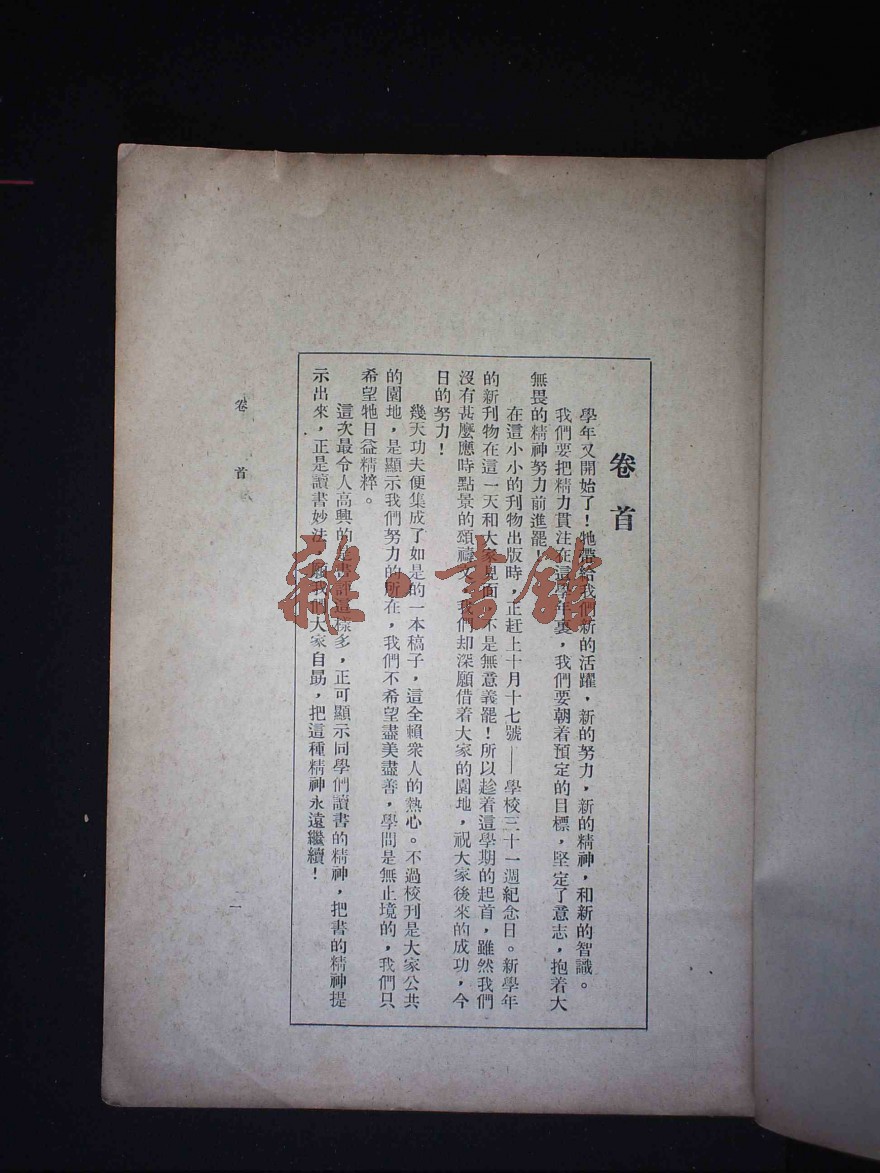 卷首
學年又開始了！牠帶給我們新的活躍，新的努力，新的精神，和新的智識。
我們要把精力貫注在這學年裏，我們要朝着預定的目標，堅定了意志，抱着大
無畏的精神努力前進罷！
在這小小的刊物出版時，正赶上十月十七號——學校三十一週紀念日。新學年
的新刊物在這一天和大家見面，不是無意義罷！所以趁着這學期的起首，雖然我們
沒有甚麼應時點景的頌禱文，我們却深願借着大家的園地，祝大家後來的成功，今
日的努力！
幾天功夫便集成了如是的一本稿子，這全賴衆人的熱心。不過校刊是大家公共
的園地，是顯示我們努力的所在，我們不希望盡美盡善，學問是無止境的，我們只
希望牠日益精粹。
這次最令人高興的是書評這樣多，正可顯示同學們讀書的精神，把書的精神提
示出來，正是讀書妙法，願我們大家自勗，把這種精神永遠繼續！
卷首
一
雜·書館